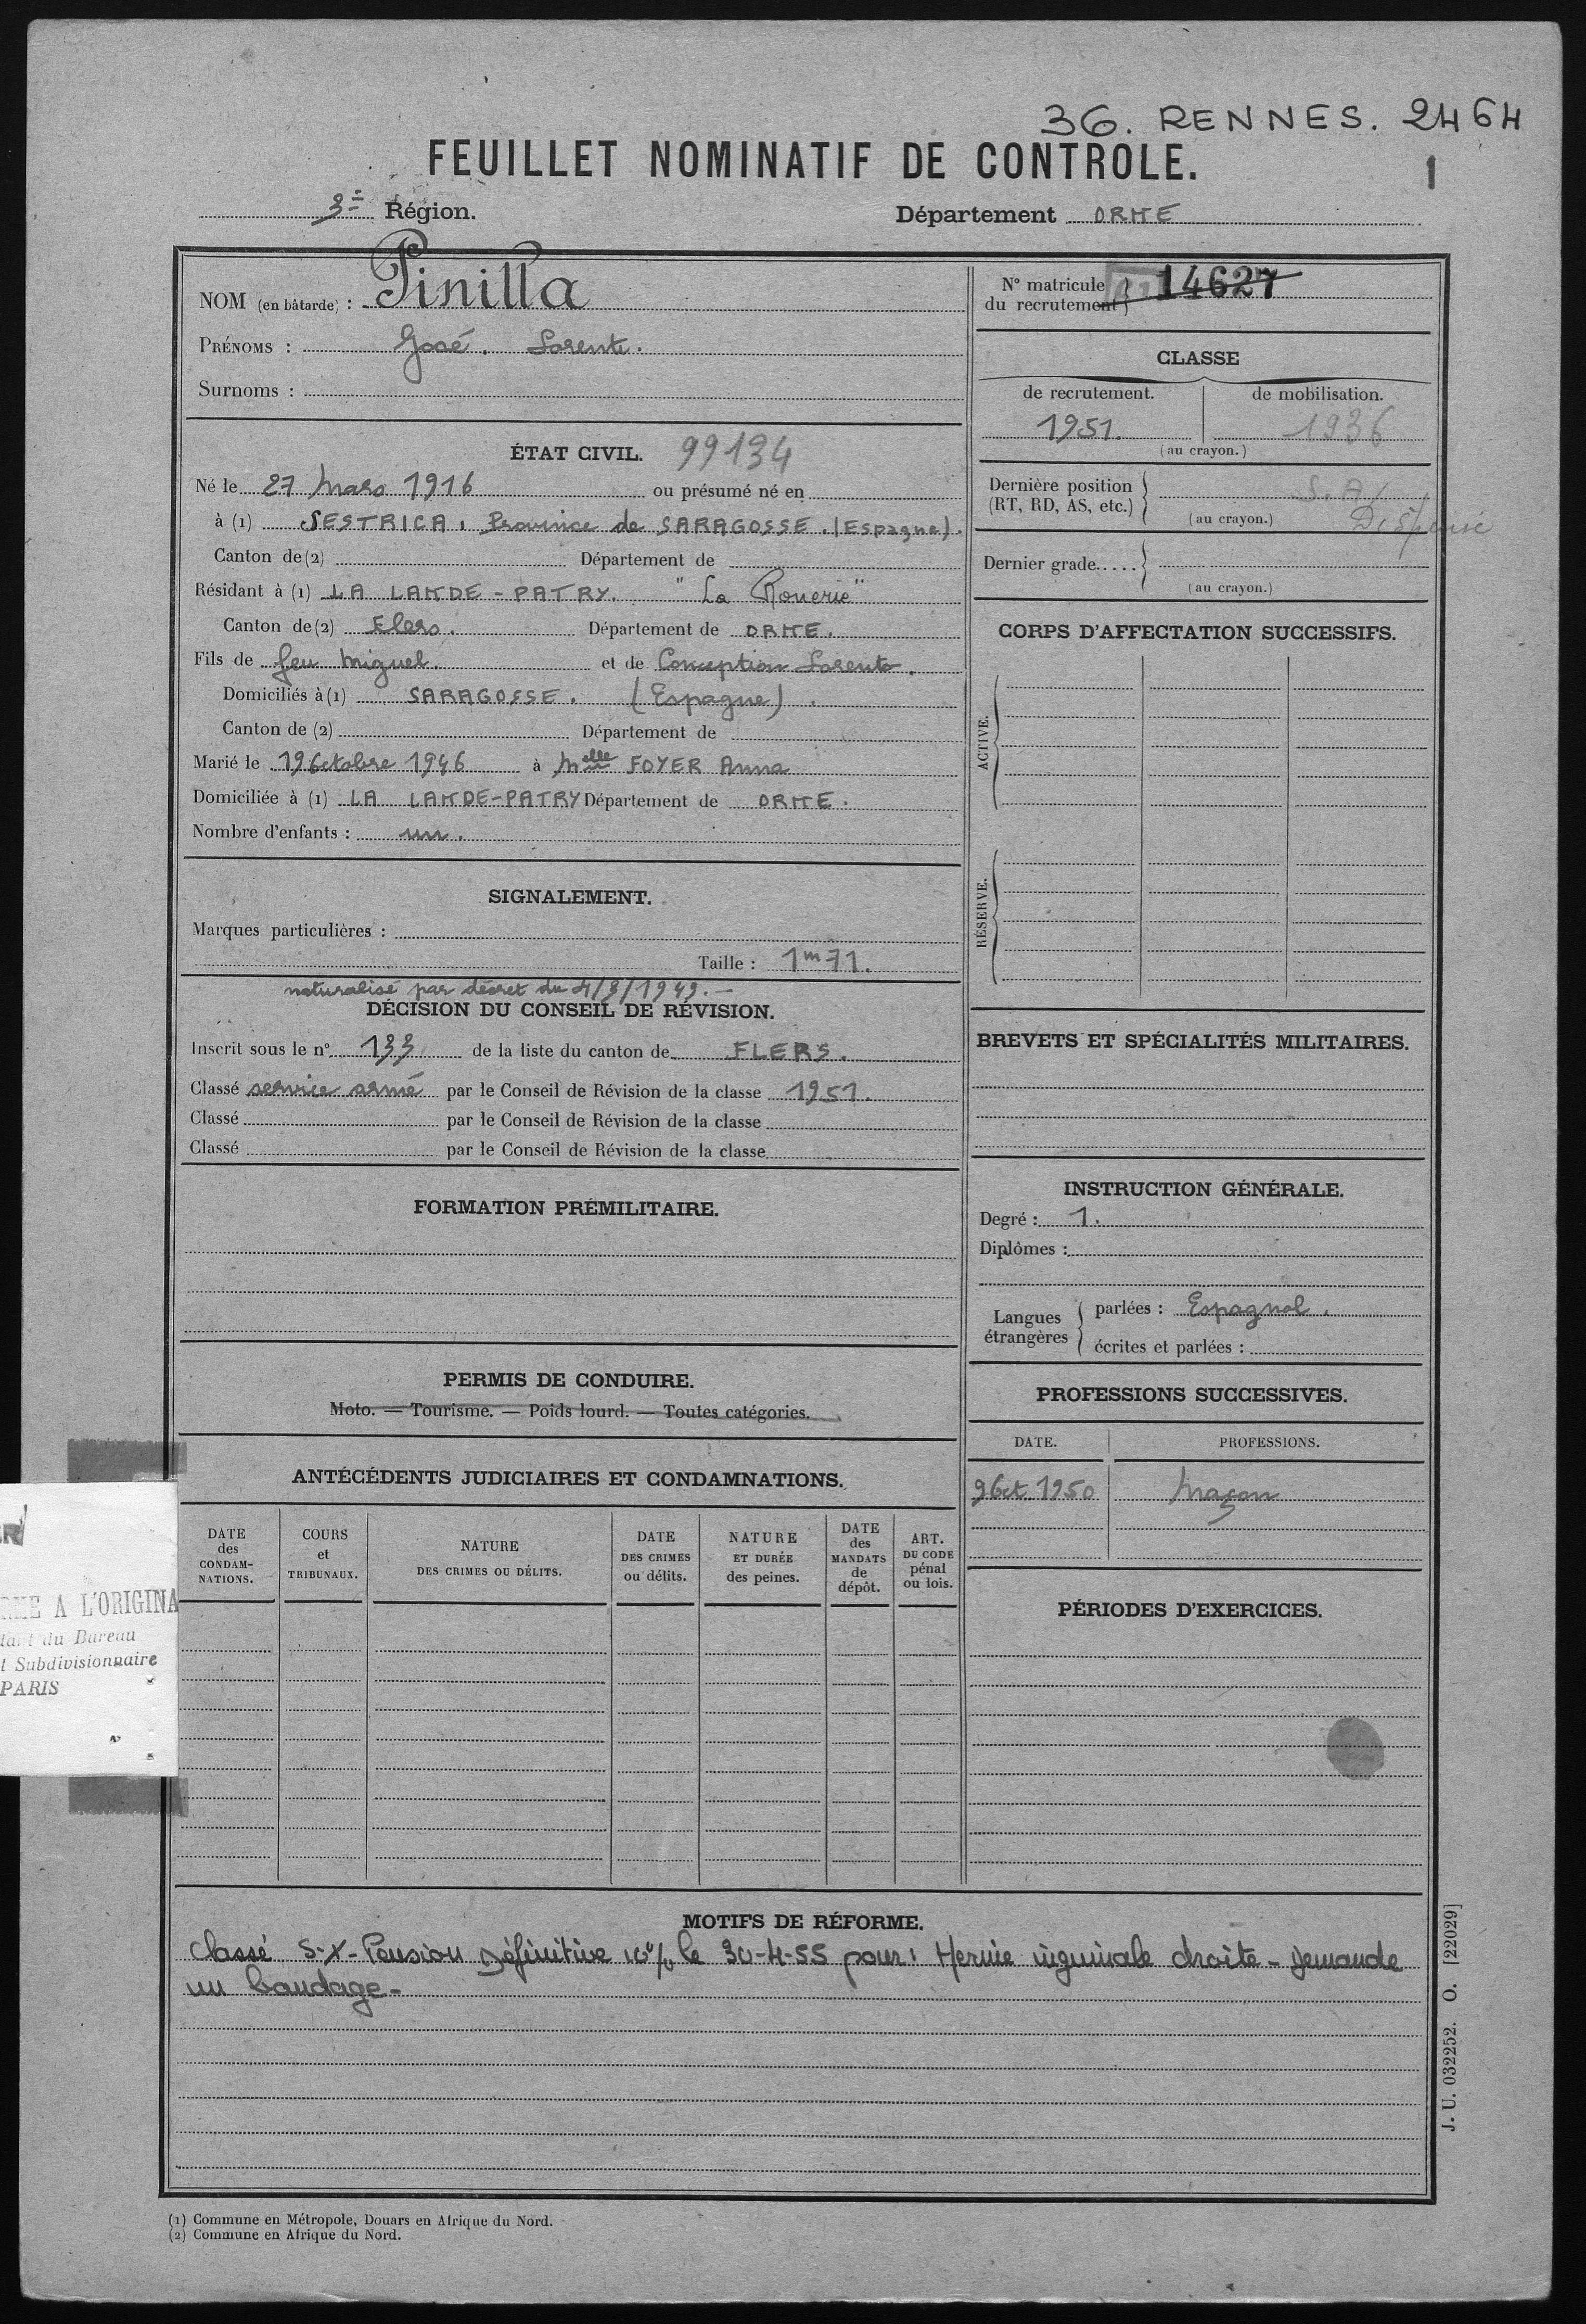 36. RENNES. 2464
FEUILLET NOMINATIF DE CONTROLE.
1
3e Région.
Département ORNE
NOM (en bâtarde) : Pinilla
PRÉNOMS : José. Lorente.
Surnoms :
ÉTAT CIVIL. 99134
Né le 27 Mars 1916 ou présumé né en
à (1) SESTRICA, Province de SARAGOSSE. (Espagne).
Canton de (2) Département de
Résidant à (1) LA LANDE-PATRY. "La Rouerie"
Canton de (2) Flers. Département de ORNE.
Fils de feu Miguel. et de Conception Lorente.
Domiciliés à (1) SARAGOSSE. (Espagne).
Canton de (2) Département de
Marié le 19 Octobre 1946 à Melle FOYER Anna
Domiciliée à (1) LA LANDE-PATRY Département de ORNE.
Nombre d'enfants : un.
SIGNALEMENT.
Marques particulières :
Taille : 1m71.
naturalisé par décret du 4/8/1949.-
DÉCISION DU CONSEIL DE RÉVISION.
Inscrit sous le n° 133 de la liste du canton de FLERS.
Classé service armé par le Conseil de Révision de la classe 1951.
Classé par le Conseil de Révision de la classe
Classé par le Conseil de Révision de la classe
FORMATION PRÉMILITAIRE.
PERMIS DE CONDUIRE.
Moto. — Tourisme. — Poids lourd. — Toutes catégories.
ANTÉCÉDENTS JUDICIAIRES ET CONDAMNATIONS.
DATE des CONDAM-NATIONS.
COURS et TRIBUNAUX.
NATURE DES CRIMES OU DÉLITS.
DATE DES CRIMES ou délits.
NATURE ET DURÉE des peines.
DATE des MANDATS de dépôt.
ART. DU CODE pénal ou lois.
N° matricule du recrutement 14627
CLASSE
de recrutement. de mobilisation.
1951. 1936
(au crayon.)
Dernière position (RT, RD, AS, etc.) S.A/
(au crayon.) Dispensé
Dernier grade.....
(au crayon.)
CORPS D'AFFECTATION SUCCESSIFS.
ACTIVE.
RÉSERVE.
BREVETS ET SPÉCIALITÉS MILITAIRES.
INSTRUCTION GÉNÉRALE.
Degré : 1.
Diplômes :
Langues étrangères
parlées : Espagnol.
écrites et parlées :
PROFESSIONS SUCCESSIVES.
DATE. PROFESSIONS.
9 Oct. 1950 Maçon
PÉRIODES D'EXERCICES.
RME A L'ORIGINA
dant du Bureau
t Subdivisionnaire
PARIS
MOTIFS DE RÉFORME.
Classé S-X- Pension Définitive 10% le 30-4-55 pour: Hernie inguinale droite - Demande
un bandage-
(1) Commune en Métropole, Douars en Afrique du Nord.
(2) Commune en Afrique du Nord.
J. U. 032252. O. [22029]